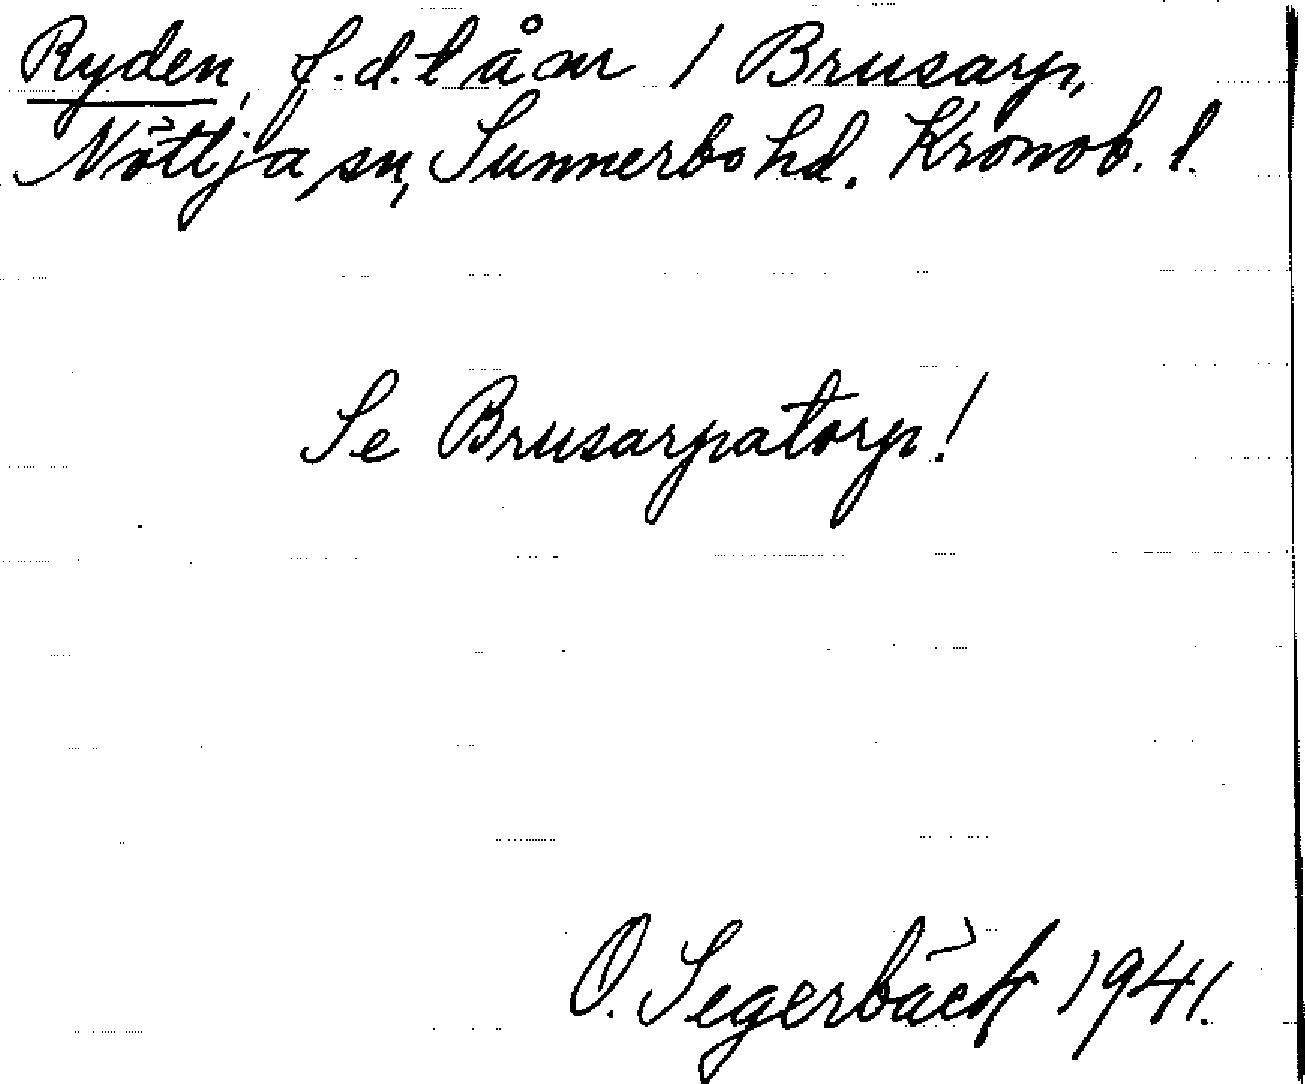 Ryden, f.d. l å nr 1 Brusarp,
Nöttja sn, Sunnerbo hd. Kronob. l.
Se Brusarpatorp!
O. Segerbäck 1941.